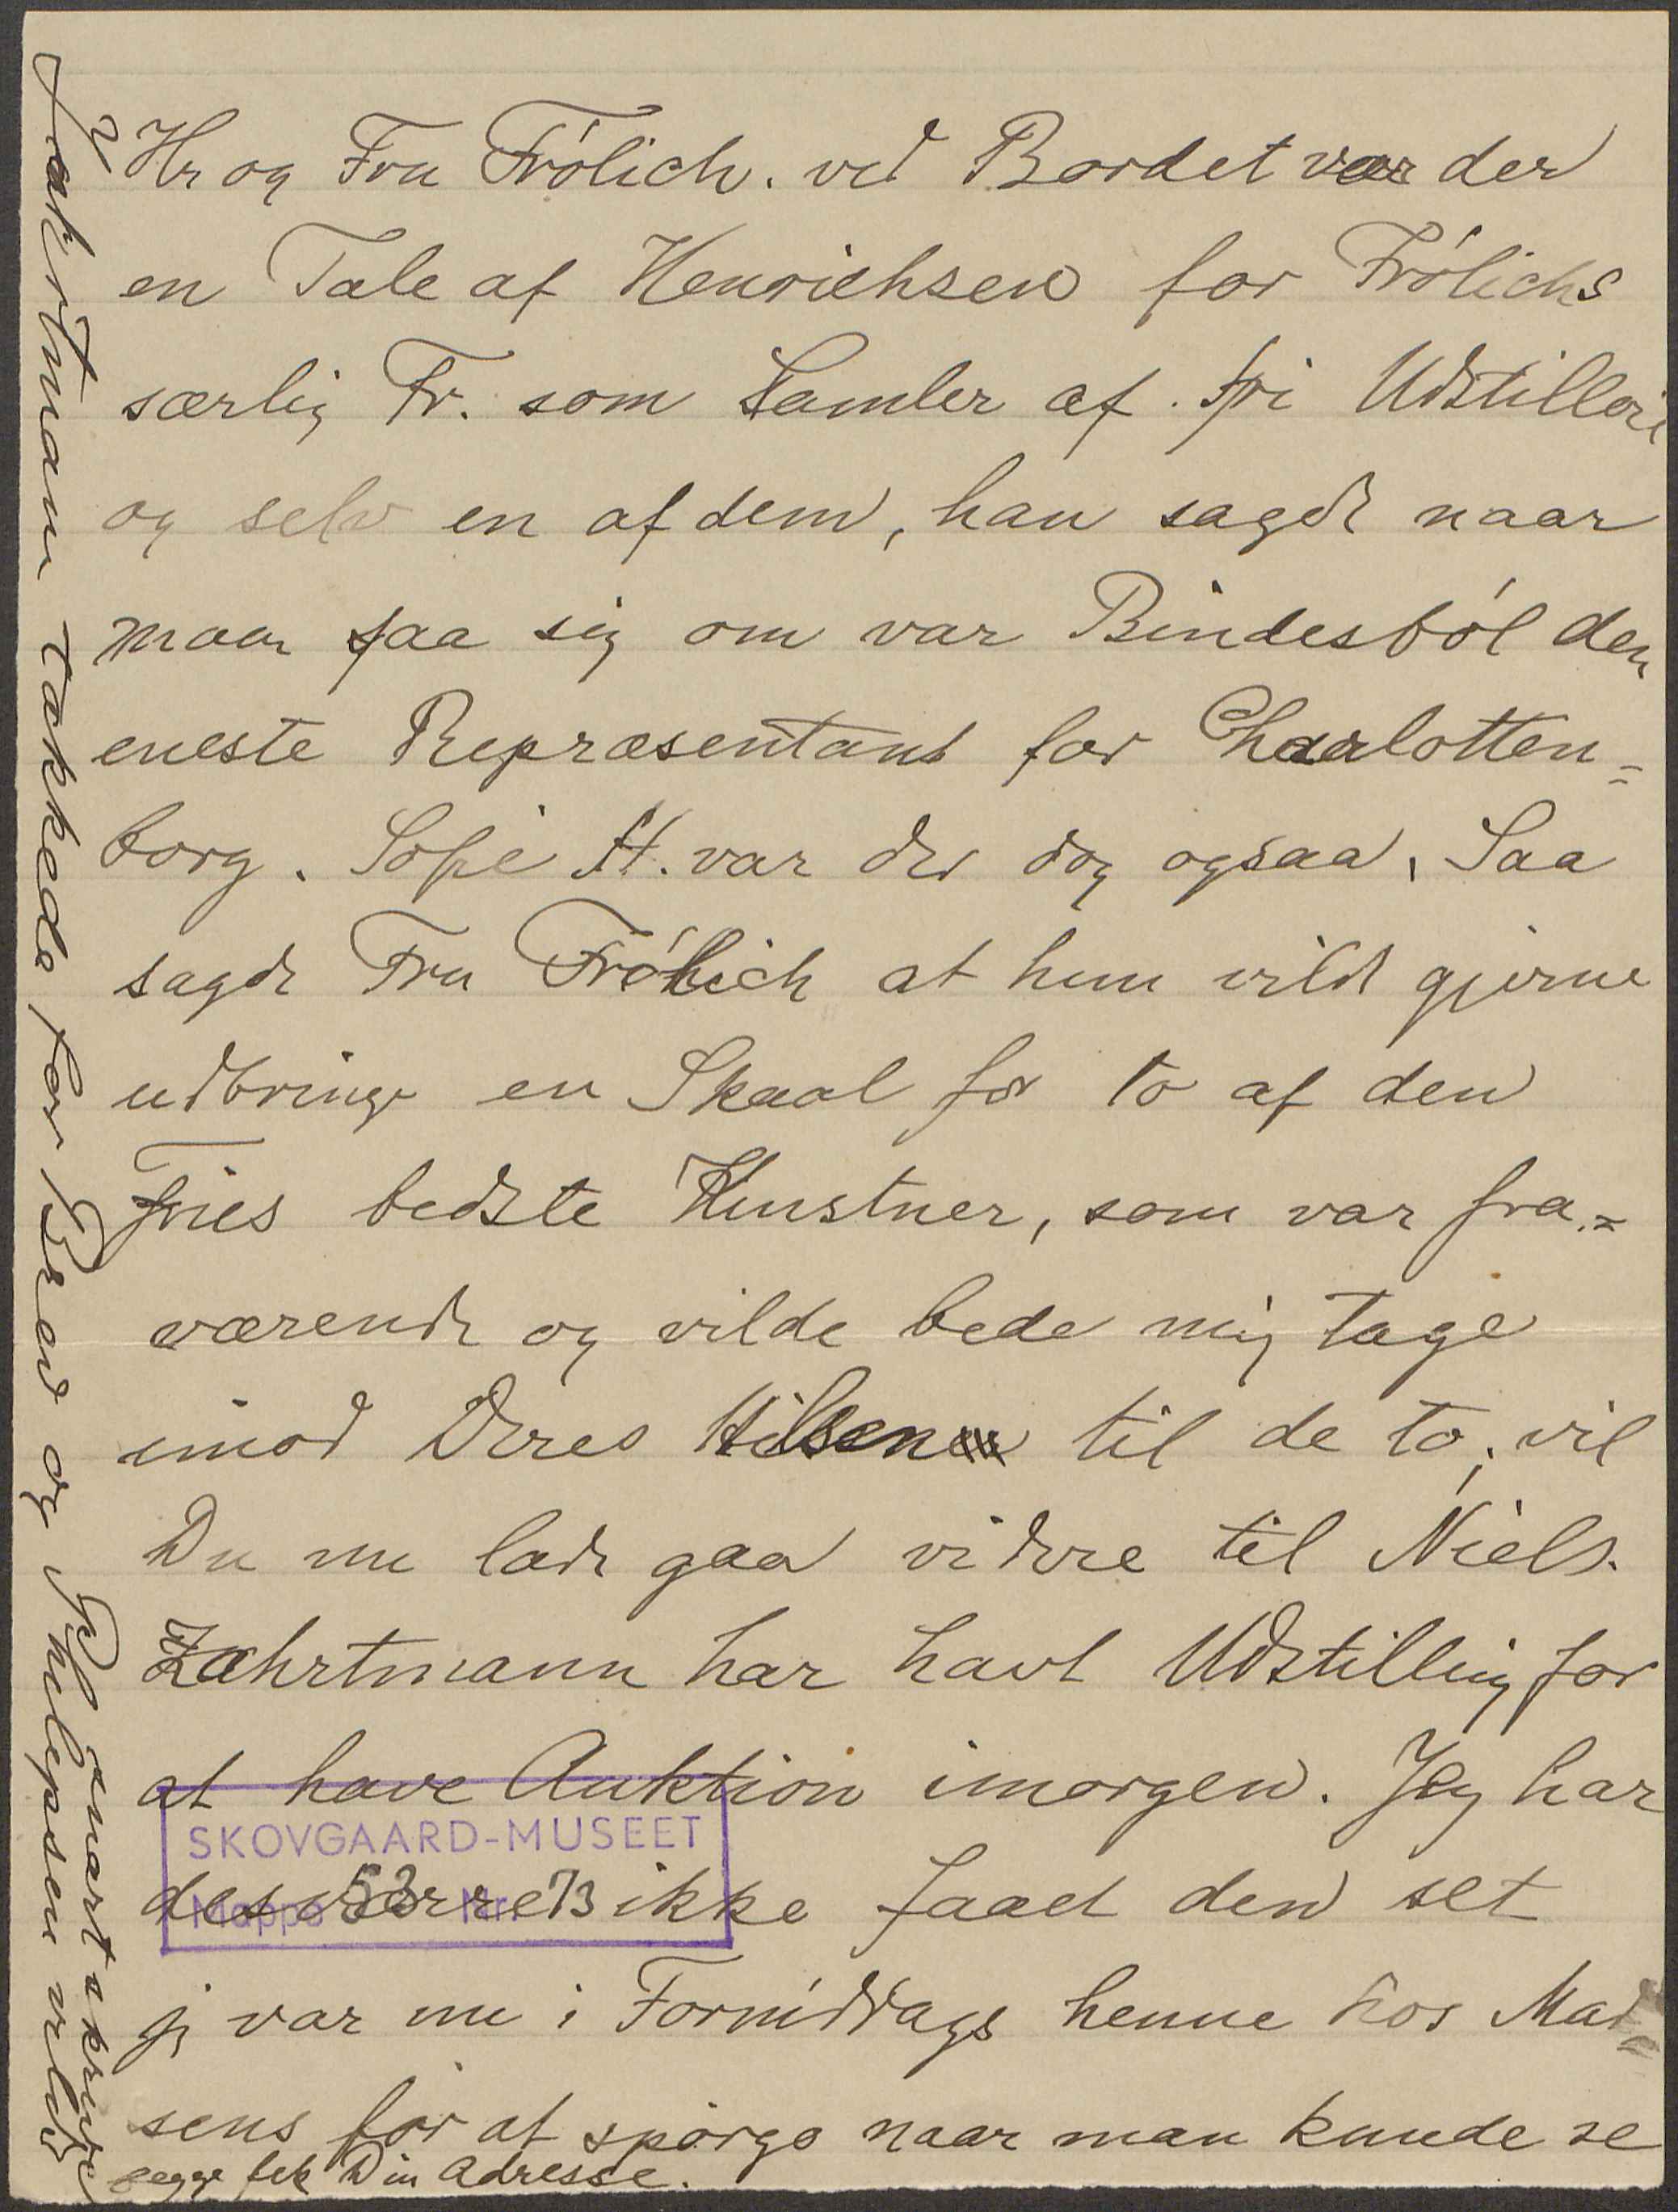 Hr og Fru Frölich. ved Bordet var der
en Tale af Henrichsen for Frölichs
særlig Fr. som Samler af fri Udstillere
og selv en af dem, han sagde naar
man saa sig om var Bindesböl den
eneste Repræsentant for Charlotten=
borg. Sofie H. var der dog ogsaa. Saa
sagde Fru Frölich at hun vilde gjerne
udbringe en Skaal for to af den
Fries bedste Kunstner, som var fra=
værende og vilde bede mig tage
imod Deres Hilsen til de to; vil
Du nu lade gaa videre til Niels.
Zahrtmann har havt Udstilling for
at have Auktion imorgen. Jeg har
desværre ikke faaet den set
jeg var nu i Formiddags henne hos Mad=
sens for at spörge naar man kunde se
Zahrtmann takkede for Brev og
Philipsen vilde
snart skrive
begge fik Din Adresse.
SKOVGAARD-MUSEET
Mappe 53 Nr. 73